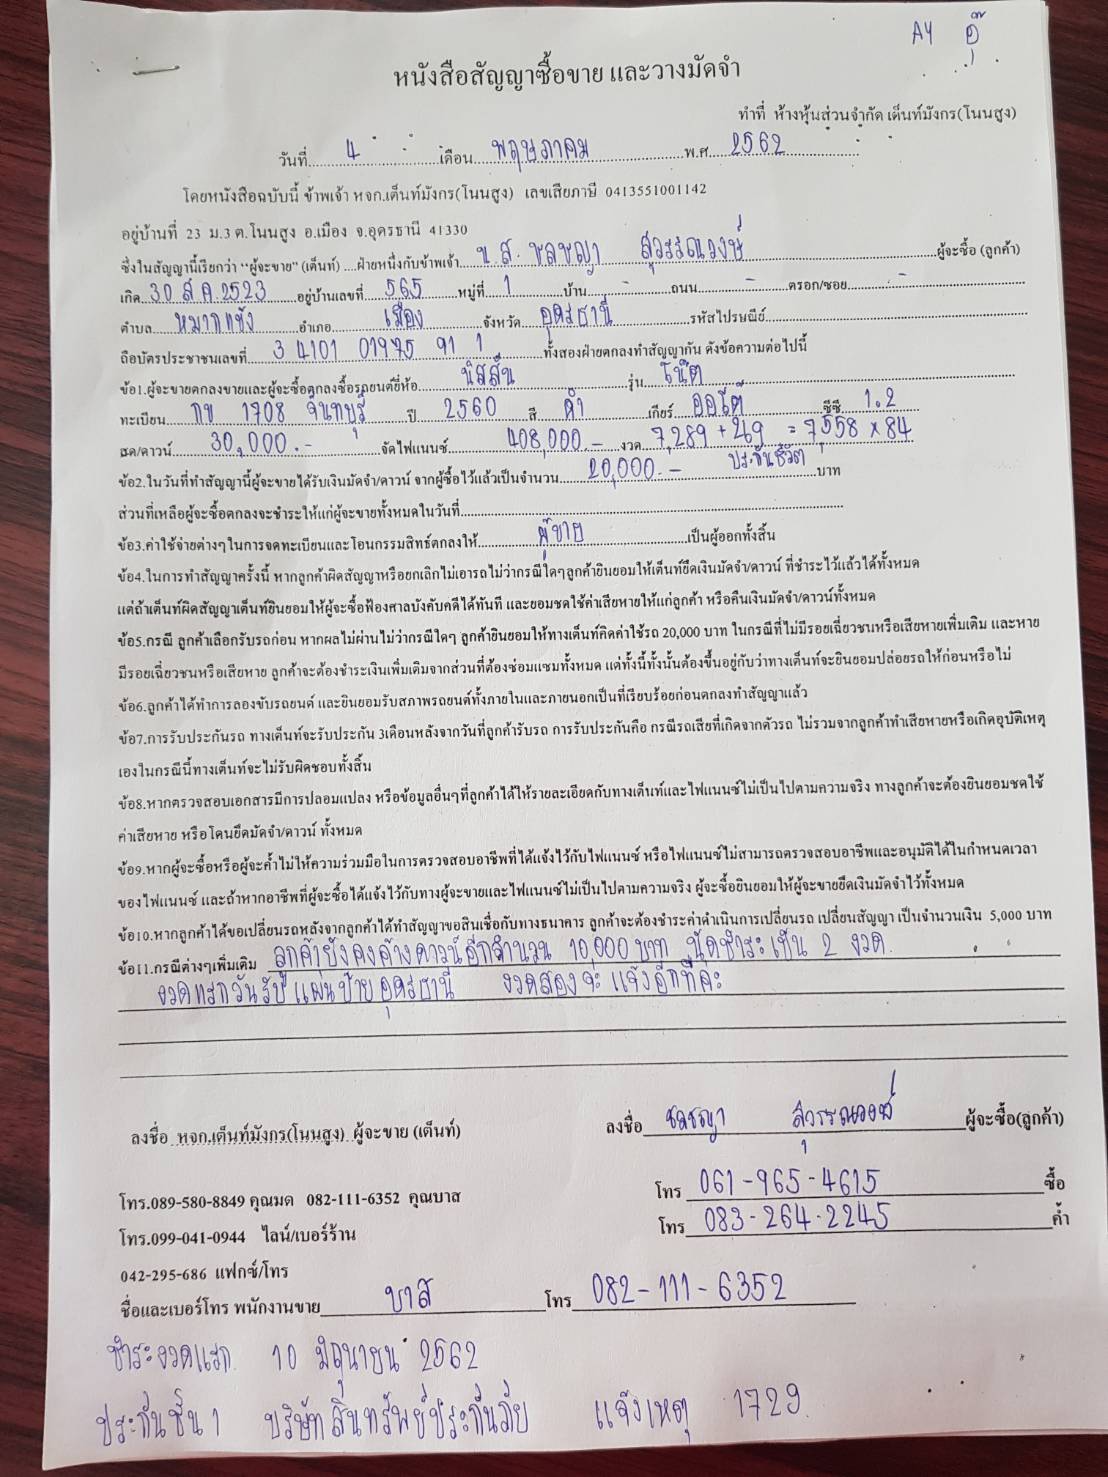 A4 อุ๊
หนังสือสัญญาซื้อขาย และวางมัดจำ
ทำที่ ห้างหุ้นส่วนจำกัด เต็นท์มังกร(โนนสูง)
วันที่ 4 เดือน พฤษภาคม พ.ศ. 2562
โดยหนังสือฉบับนี้ ข้าพเจ้า หจก.เต็นท์มังกร(โนนสูง) เลขเสียภาษี 0413551001142
อยู่บ้านที่ 23 ม.3 ต.โนนสูง อ.เมือง จ.อุดรธานี 41330
ซึ่งในสัญญานี้เรียกว่า "ผู้จะขาย" (เต็นท์) ....ฝ่ายหนึ่งกับข้าพเจ้า น.ส. ชลชญา สุวรรณวงษ์ ผู้จะซื้อ (ลูกค้า)
เกิด 30 ส.ค. 2523 อยู่บ้านเลขที่ 565 หมู่ที่ 1 บ้าน - ถนน - ตรอก/ซอย -
ตำบล หมากแข้ง อำเภอ เมือง จังหวัด อุดรธานี รหัสไปรษณีย์
ถือบัตรประชาชนเลขที่ 3 4101 01975 91 1 ทั้งสองฝ่ายตกลงทำสัญญากัน ดังข้อความต่อไปนี้
ข้อ1.ผู้จะขายตกลงขายและผู้จะซื้อตกลงซื้อรถยนต์ยี่ห้อ นิสสัน รุ่น โน๊ต
ทะเบียน กข 1708 จันทบุรี ปี 2560 สี ดำ เกียร์ ออโต้ ซีซี 1.2
สด/ดาวน์ 30,000.- จัดไฟแนนซ์ 408,000.- งวด 7,289 + 269 = 7,558 x 84
ข้อ2.ในวันที่ทำสัญญานี้ผู้จะขายได้รับเงินมัดจำ/ดาวน์ จากผู้ซื้อไว้แล้วเป็นจำนวน 20,000.- ประกันชีวิต บาท
ส่วนที่เหลือผู้จะซื้อตกลงจะชำระให้แก่ผู้จะขายทั้งหมดในวันที่
ข้อ3.ค่าใช้จ่ายต่างๆในการจดทะเบียนและโอนกรรมสิทธ์ตกลงให้ ผู้ขาย เป็นผู้ออกทั้งสิ้น
ข้อ4.ในการทำสัญญาครั้งนี้ หากลูกค้าผิดสัญญาหรือยกเลิกไม่เอารถไม่ว่ากรณีใดๆลูกค้ายินยอมให้เต็นท์ยึดเงินมัดจำ/ดาวน์ ที่ชำระไว้แล้วได้ทั้งหมด
แต่ถ้าเต็นท์ผิดสัญญาเต็นท์ยินยอมให้ผู้จะซื้อฟ้องศาลบังคับคดีได้ทันที และยอมชดใช้ค่าเสียหายให้แก่ลูกค้า หรือคืนเงินมัดจำ/ดาวน์ทั้งหมด
ข้อ5.กรณี ลูกค้าเลือกรับรถก่อน หากผลไม่ผ่านไม่ว่ากรณีใดๆ ลูกค้ายินยอมให้ทางเต็นท์คิดค่าใช้รถ 20,000 บาท ในกรณีที่ไม่มีรอยเฉี่ยวชนหรือเสียหายเพิ่มเติม และหาย
มีรอยเฉี่ยวชนหรือเสียหาย ลูกค้าจะต้องชำระเงินเพิ่มเติมจากส่วนที่ต้องซ่อมแซมทั้งหมด แต่ทั้งนี้ทั้งนั้นต้องขึ้นอยู่กับว่าทางเต็นท์จะยินยอมปล่อยรถให้ก่อนหรือไม่
ข้อ6.ลูกค้าได้ทำการลองขับรถยนต์ และยินยอมรับสภาพรถยนต์ทั้งภายในและภายนอกเป็นที่เรียบร้อยก่อนตกลงทำสัญญาแล้ว
ข้อ7.การรับประกันรถ ทางเต็นท์จะรับประกัน 3เดือนหลังจากวันที่ลูกค้ารับรถ การรับประกันคือ กรณีรถเสียที่เกิดจากตัวรถ ไม่รวมจากลูกค้าทำเสียหายหรือเกิดอุบัติเหตุ
เองในกรณีนี้ทางเต็นท์จะไม่รับผิดชอบทั้งสิ้น
ข้อ8.หากตรวจสอบเอกสารมีการปลอมแปลง หรือข้อมูลอื่นๆที่ลูกค้าได้ให้รายละเอียดกับทางเต็นท์และไฟแนนซ์ไม่เป็นไปตามความจริง ทางลูกค้าจะต้องยินยอมชดใช้
ค่าเสียหาย หรือโดนยึดมัดจำ/ดาวน์ ทั้งหมด
ข้อ9.หากผู้จะซื้อหรือผู้จะค้ำไม่ให้ความร่วมมือในการตรวจสอบอาชีพที่ได้แจ้งไว้กับไฟแนนซ์ หรือไฟแนนซ์ไม่สามารถตรวจสอบอาชีพและอนุมัติได้ในกำหนดเวลา
ของไฟแนนซ์ และถ้าหากอาชีพที่ผู้จะซื้อได้แจ้งไว้กับทางผู้จะขายและไฟแนนซ์ไม่เป็นไปตามความจริง ผู้จะซื้อยินยอมให้ผู้จะขายยึดเงินมัดจำไว้ทั้งหมด
ข้อ10.หากลูกค้าได้ขอเปลี่ยนรถหลังจากลูกค้าได้ทำสัญญาขอสินเชื่อกับทางธนาคาร ลูกค้าจะต้องชำระค่าดำเนินการเปลี่ยนรถ เปลี่ยนสัญญา เป็นจำนวนเงิน 5,000 บาท
ข้อ11.กรณีต่างๆเพิ่มเติม ลูกค้ายังคงค้างดาวน์อีกจำนวน 10,000 บาท นัดชำระเป็น 2 งวด
งวดแรกวันรับแผ่นป้ายอุดรธานี งวดสองจะแจ้งอีกทีค่ะ
ลงชื่อ หจก.เต็นท์มังกร(โนนสูง) ผู้จะขาย (เต็นท์) ลงชื่อ ชลชญา สุวรรณวงษ์ ผู้จะซื้อ(ลูกค้า)
โทร.089-580-8849 คุณมด 082-111-6352 คุณบาส โทร 061-965-4615 ซื้อ
โทร.099-041-0944 ไลน์/เบอร์ร้าน โทร 083-264-2245 ค้ำ
042-295-686 แฟกซ์/โทร
ชื่อและเบอร์โทร พนักงานขาย บาส โทร 082-111-6352
ชำระงวดแรก 10 มิถุนายน 2562
ประกันชั้น 1 บริษัทสินทรัพย์ประกันภัย แจ้งเหตุ 1729